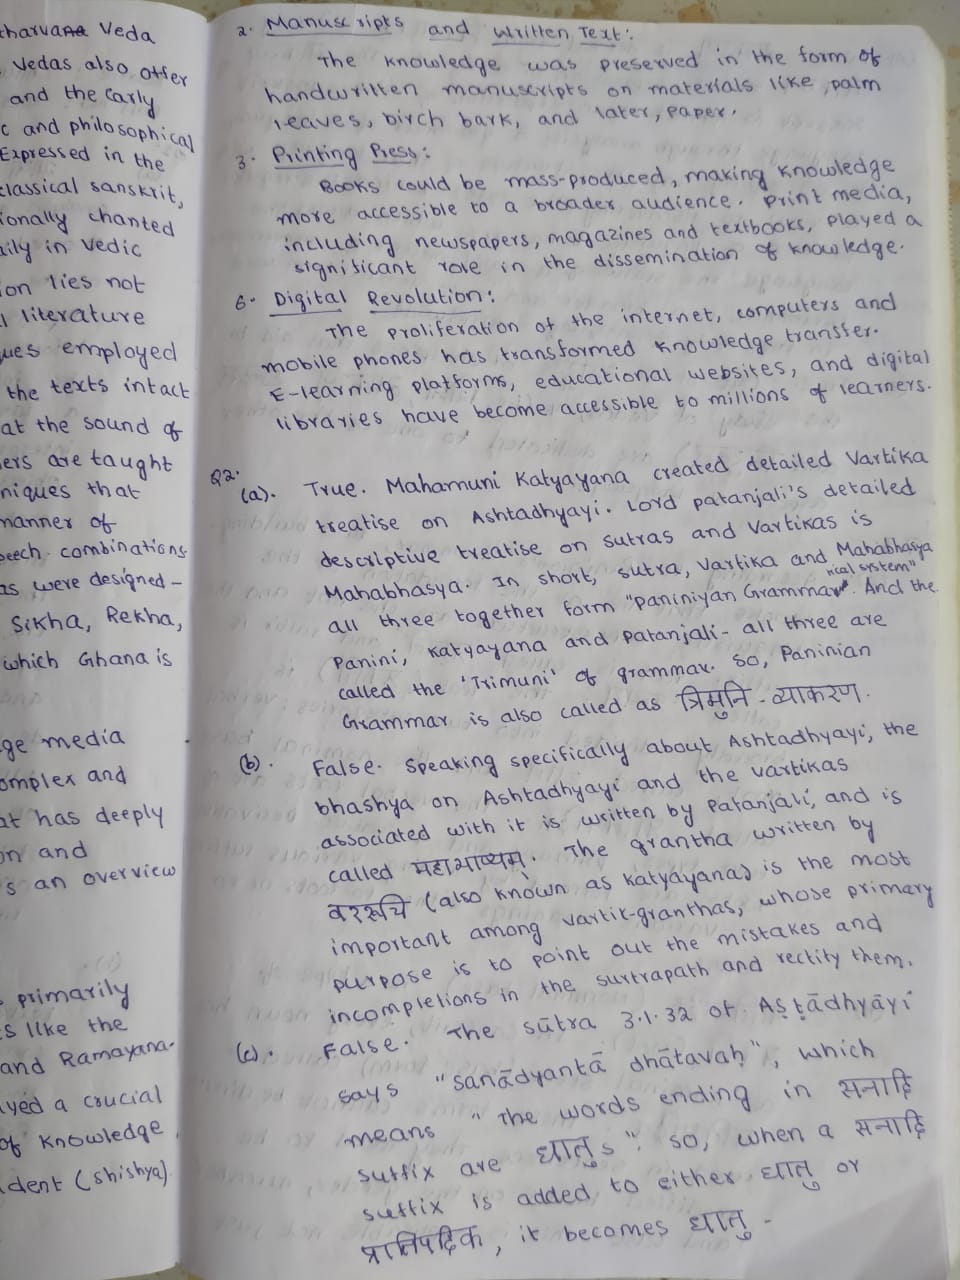 tharvana Veda
Vedas also offer
and the Early
c and philosophical
Expressed in the
classical sanskrit,
ionally chanted
aily in vedic
ion lies not
l literature
ues employed
the texts intact
at the sound of
ers are taught
niques that
manner of
peech combinations
as were designed -
Sikha, Rekha,
which Ghana is
ge media
omplex and
at has deeply
on and
s an overview
primarily
s like the
and Ramayana.
ayed a crucial
of knowledge
dent (shishya).
2. Manuscripts and Written Text:
The knowledge was preserved in the form of
handwritten manuscripts on materials like palm
leaves, birch bark, and later, paper.
3. Printing Press:
Books could be mass-produced, making knowledge
more accessible to a broader audience. Print media,
including newspapers, magazines and textbooks, played a
significant role in the dissemination of knowledge.
6. Digital Revolution:
The proliferation of the internet, computers and
mobile phones has transformed knowledge transfer.
E-learning platforms, educational websites, and digital
libraries have become accessible to millions of learners.
Q2.
(a). True. Mahamuni Katyayana created detailed Vartika
treatise on Ashtadhyayi. Lord patanjali's detailed
descriptive treatise on sutras and Vartikas is
Mahabhasya. In short, sutra, vartika and Mahabhasya
all three together form "Paniniyan Grammatical system". And the
Panini, Katyayana and Patanjali - all three are
called the 'Trimuni' of grammar. So, Paninian
Grammar is also called as त्रिमुनि - व्याकरण.
(b). False. Speaking specifically about Ashtadhyayi, the
bhashya on Ashtadhyayi and the vartikas
associated with it is written by Patanjali, and is
called महाभाष्यम्. The grantha written by
वररूचि (also known as Katyayana) is the most
important among vartik-granthas, whose primary
purpose is to point out the mistakes and
incompletions in the surtrapath and rectify them.
(c). False. The sūtra 3.1.32 of Aṣṭādhyāyi
says "sanādyantā dhātavaḥ", which
means "The words ending in सनादि
suffix are धातु s". So, when a सनादि
suffix is added to either धातु or
प्रातिपदिक, it becomes धातु.